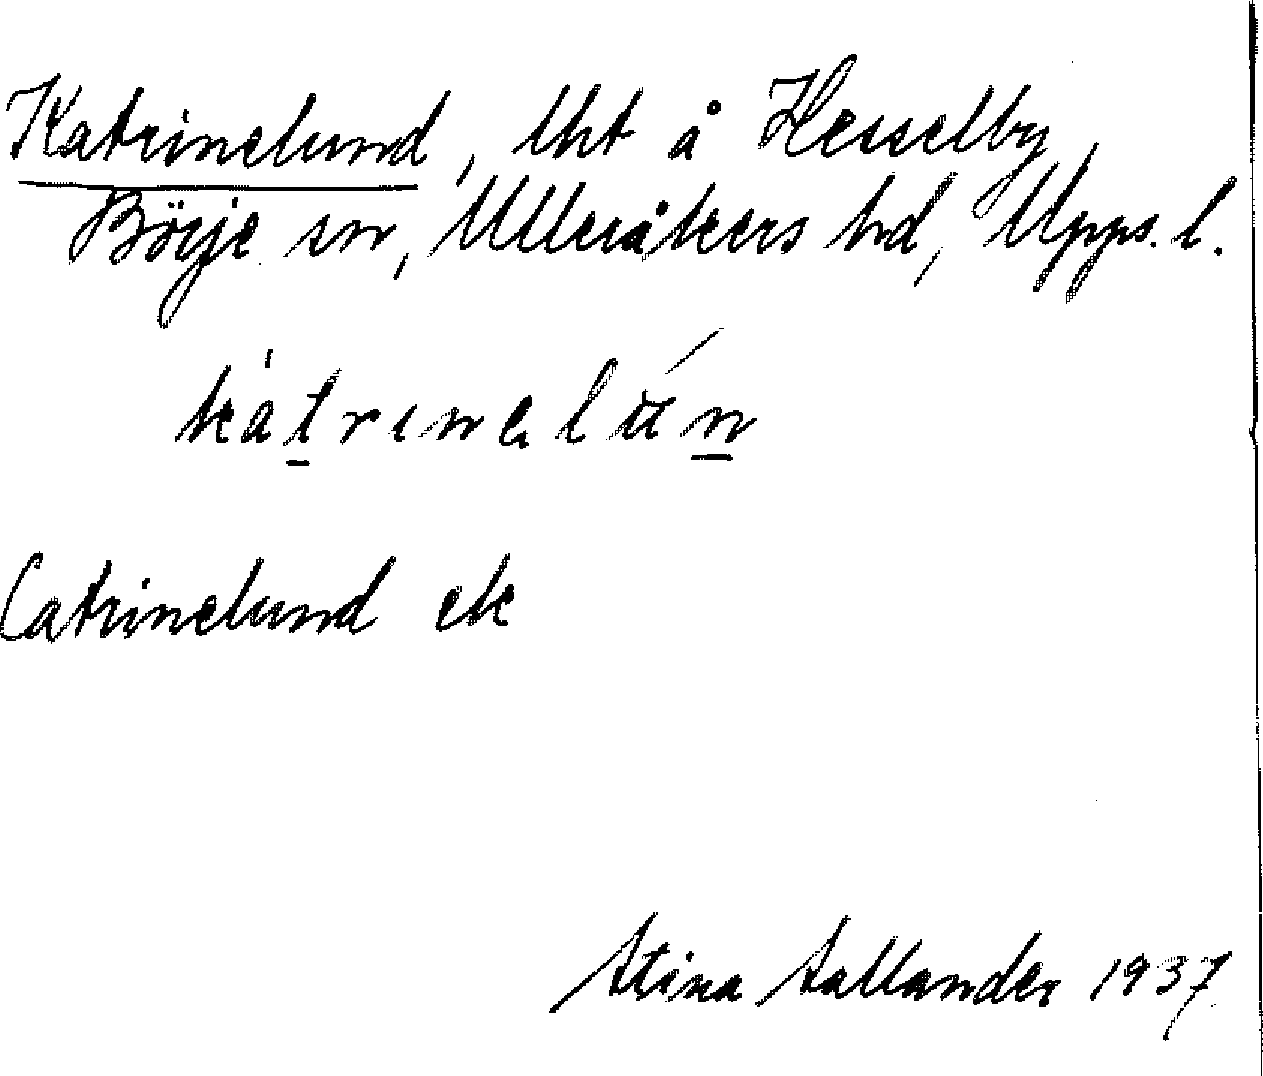 Katrinelund, lht å Hesselby,
Börje sn, Ulleråkers hd, Upps. l.
kàtrınelún
Catrinelund ek
Stina Sallander 1937